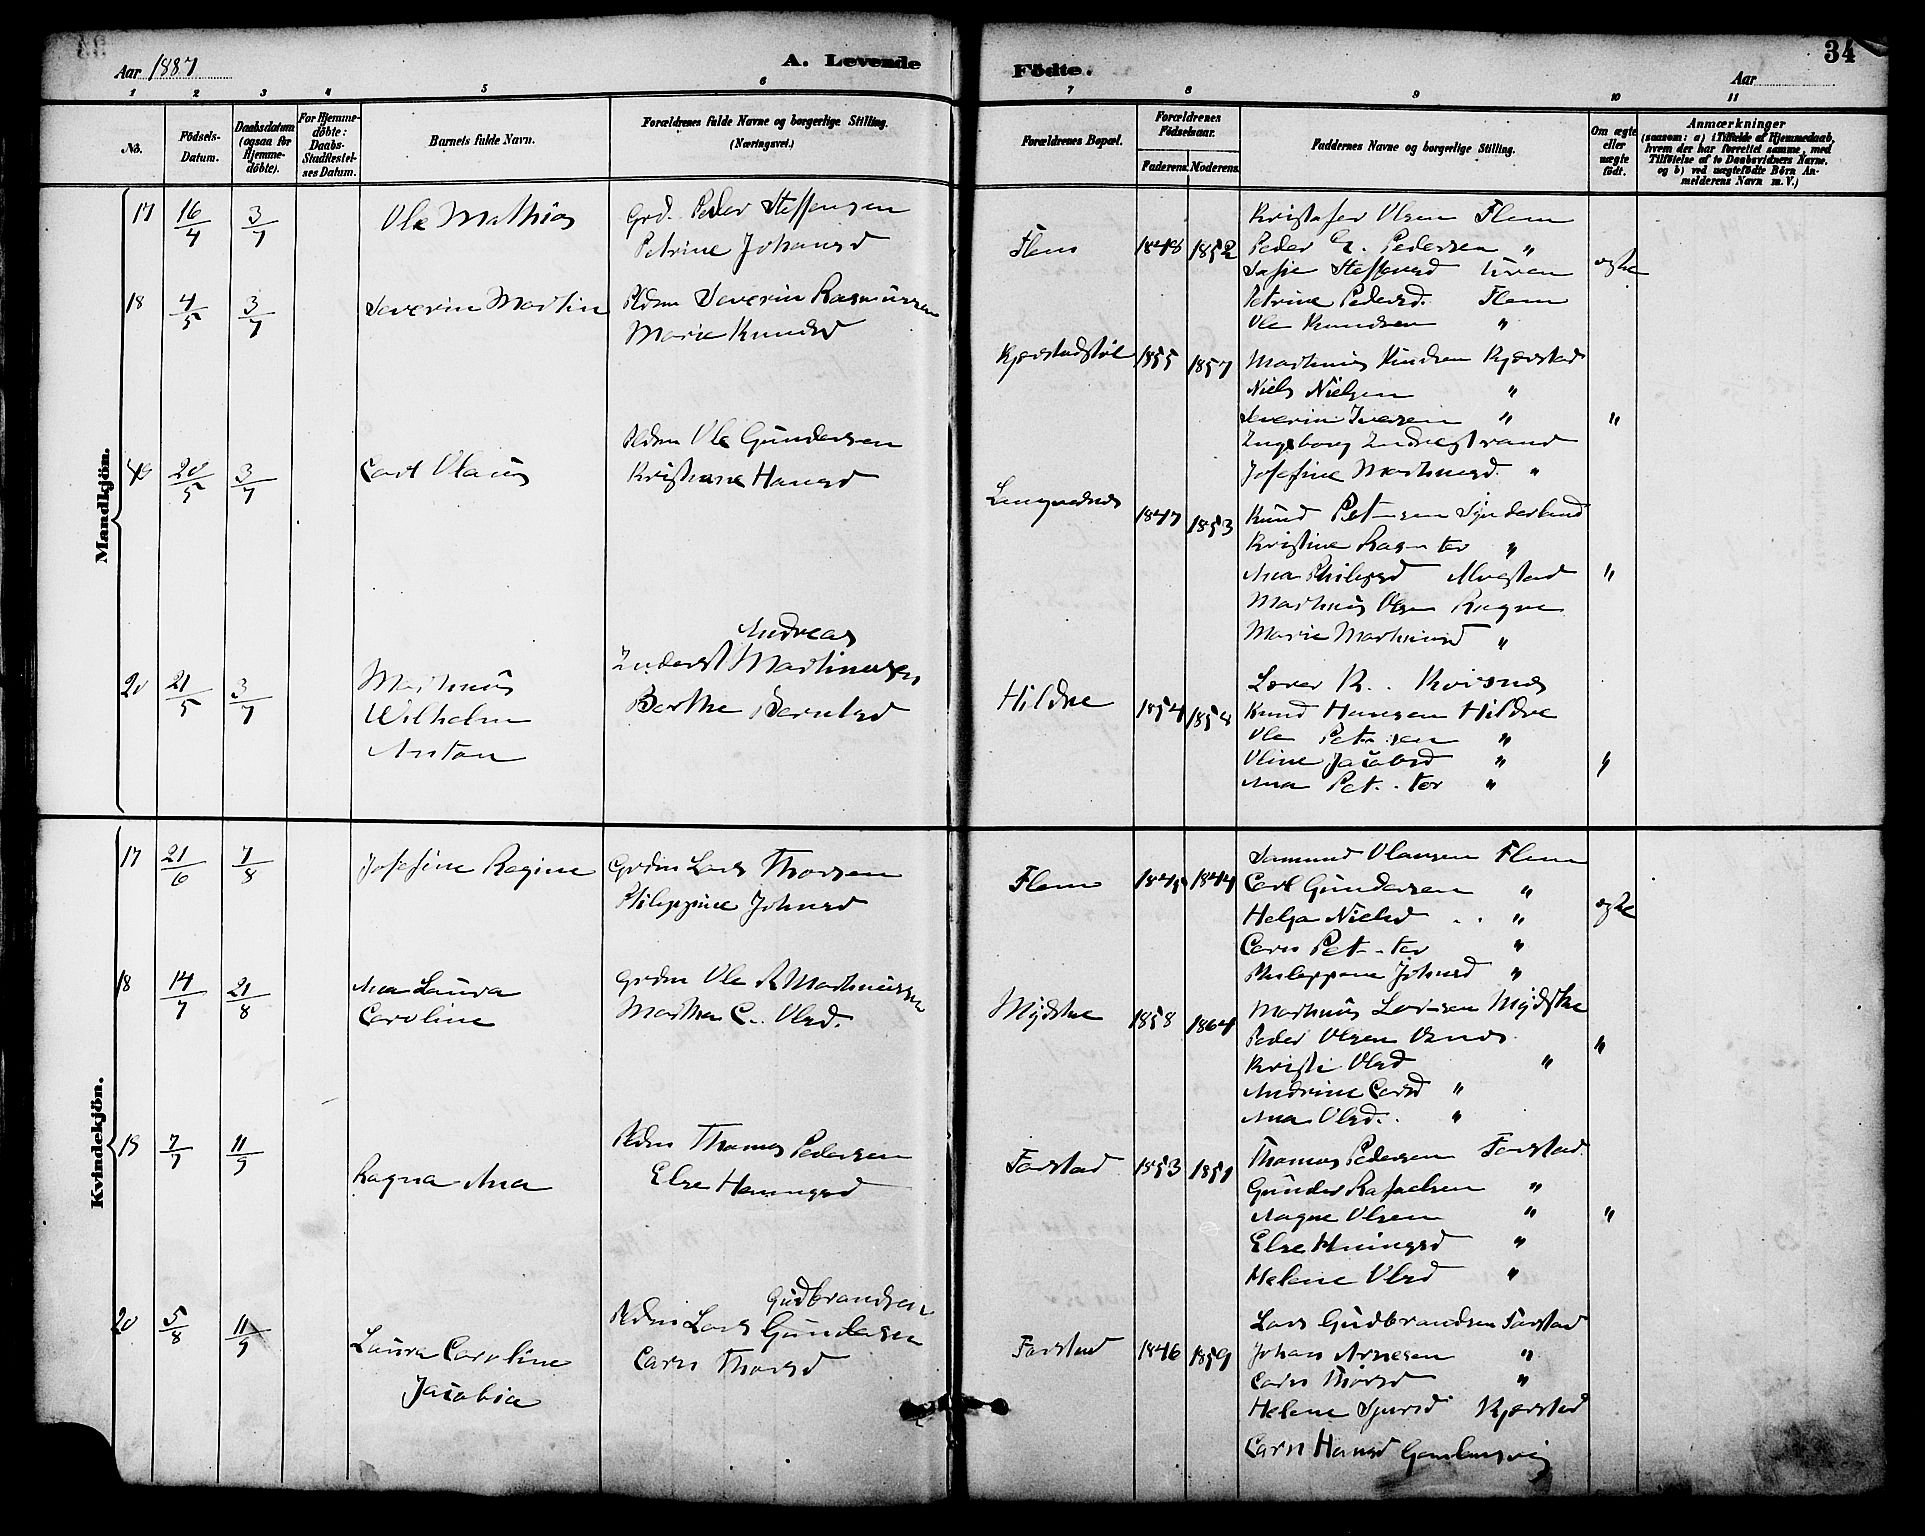 Aar 1887
A. Levende Födte.
34
Aar
1 2 3 4 5 6 7 8 9 10 11
No.
Födsels-Datum.
Daabsdatum (ogsaa for Hjemme-döbte).
For Hjemme-döbte: Daabs-Stadfæstel-ses Datum.
Barnets fulde Navn.
Forældrenes fulde Navne og borgerlige Stilling. (Næringsvei.)
Forældrenes Bopæl.
Forældrenes Födselsaar.
Faderens. Moderens.
Faddernes Navne og borgerlige Stilling.
Om ægte eller uægte födt.
Anmærkninger
(saasom: a) i Tilfælde af Hjemmedaab, hvem der har forrettet samme, med Tilföielse af to Daabsvidners Navne. og b) ved uægtefödte Börn An-melderens Navn m. V.)
Mandkjön.
17 16/4 3/7 Ole Mathias
Grd. Peder Steffensen
Petrine Johansd
Flem 1848 1852
Kristofer Olsen Flem
Peder E. Pedersen "
Steffensd
ægte
Petrine Pedersd. Flem
Ole Knudsen "
18 4/5 3/7 Severin Martin
Pldsm Severin Rasmussen
Marie Knudsd
Kjærstadstøl 1855 1857
Mathinus Knudsen Kjærstad
Niels Nielsen "
Severin Iversen " "
Ingeborg
Josefine Martinusd. "
20/5 3/7 Carl Olaus
Pldsm Ole Gundersen
Kristiane Hansd
1847 1853
Knud Petersen
Kristine "
Ana Philipsd "
Mathinus Olsen
Marie Martinusd "
20 21/5 3/7 Martinus
Wilhelm
Anton
Andreas
Inderst Martinussen
Berthe Berntsd
Hildre 1854 1858
Lærer K. Kvisnes
Knud Hansen Hildre
Ole Petersen "
Oline Jacobsd " "
Ana Pet..ter "
Kvindekjön.
17 21/6 7/8 Josefine Regine
Grdm Lars Thorsen
Philippine Johnsd
Flem 1844
Samund Olausen Flem
Carl Gundersen "
Helga Nielsd "
ægte
Caren Pet..ter "
Philippine Johnsd "
18 14/7 21/8 Ana Laura
Caroline
Grdm Ole R Mathinussen
Marthe C. Olsd.
Mydske 1858 1864
Mathinus Larsen Mydske
Peder Olsen "
Kristi Olsd "
Andrine Carsd "
Ana Olsd. "
19 7/7 11/9
Ragna Ana
Pldsm Thomas Pedersen
Else Henningsd
Farstad 1853 1851
Thomas Pedersen Farstad.
Gunder Rafaelsen "
Magne Olsen " "
Else Hningsd "
Helene Olsd "
20 5/8 11/9
Laura Caroline
Jacobia
Gudbrandsen
Pldsm Lars Gundersen
Caren Thorsd
Farstad 1846 1859
Lars Gudbrandsen Farstad
Johan Arnesen "
Caren Thorsd "
Helene Sjursd Kjærstad
Caren Hansd